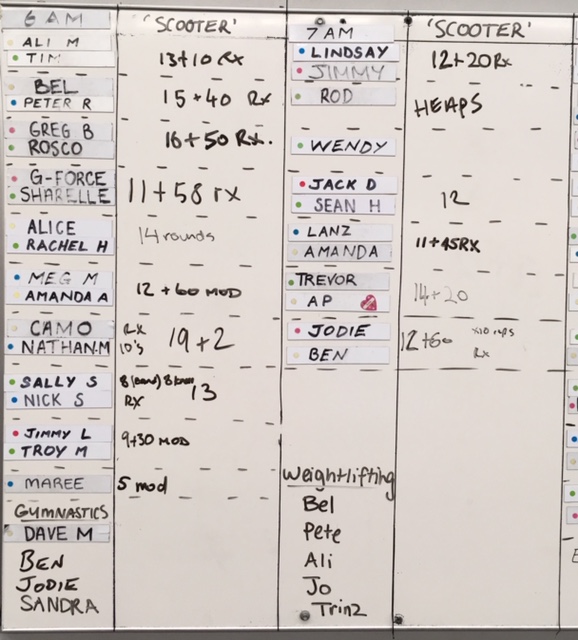 6 AM 'SCOOTER'
ALI M
TIM 13+10 Rx
BEL
PETER R 15+40 Rx
GREG B
ROSCO 16+50 Rx.
G-FORCE
SHARELLE 11+58 rx
ALICE
RACHEL H 14 rounds
MEG M
AMANDA A 12 + 60 MOD
CAMO RX
NATHAN.M 10's 19+2
SALLY S 8 (band) 8
NICK S RX 13
JIMMY L
TROY M 9+30 MOD
MAREE 5 mod
GYMNASTICS
DAVE M
BEN
JODIE
SANDRA
7 AM 'SCOOTER'
LINDSAY
JIMMY 12+20Rx
ROD HEAPS
WENDY
JACK D
SEAN H 12
LANZ
AMANDA 11+45RX
TREVOR
AP 14+20
JODIE 12+60 x10 reps
BEN Rx
Weightlifting
Bel
Pete
Ali
Jo
Trinz